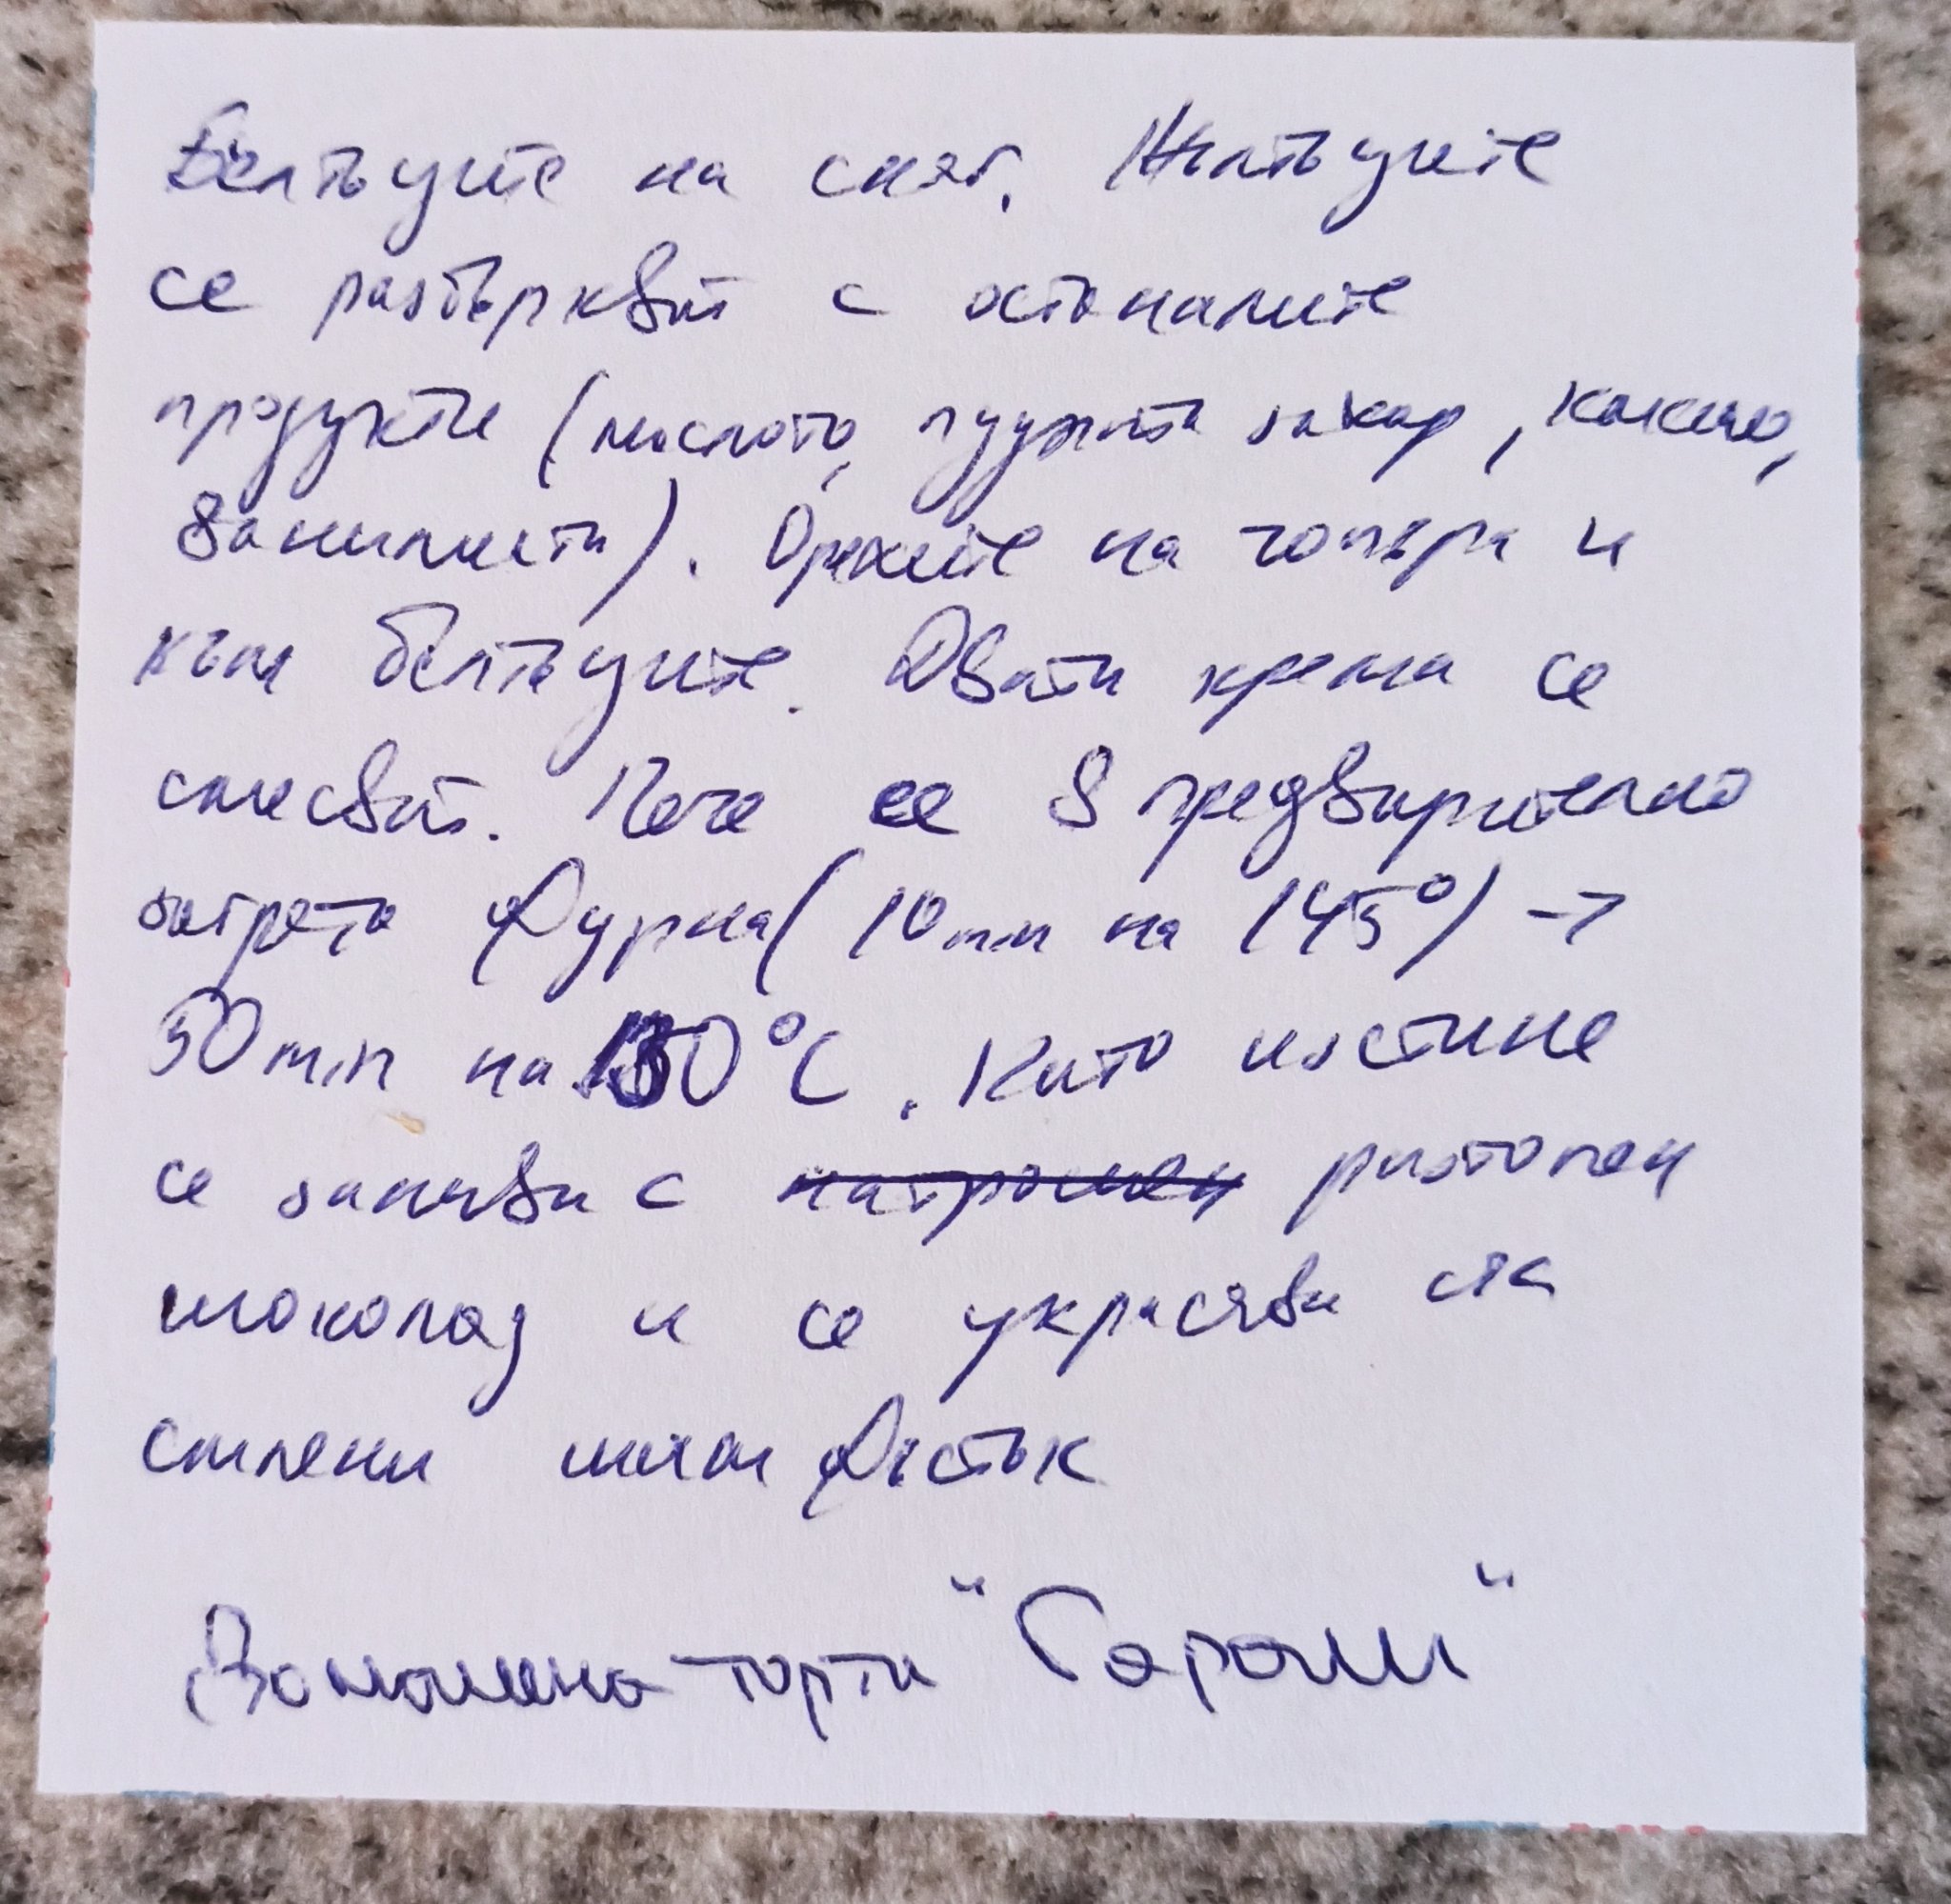 Белтъците на сняг. Жълтъците
се разбъркват с останалите
продукти (маслото, пудрата захар, какао,
ванилията). Орехите на топъра и
към белтъците. Двата крема се
смесват. Пече се в предварително
загрята фурна (10 min на 145°) →
50 min на 130°C. Като изстине
се залива с разтопен
шоколад и се украсява със
смлени шам фъстък
Домашна торта "Гараш"